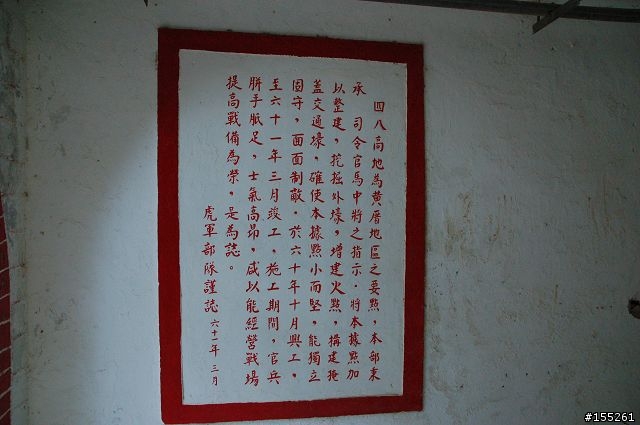 四八高地為黄厝地區之要點，本部秉
承　司令官馬中將之指示．將本據點加
以整建，挖掘外壕，增建火點，構建掩
蓋交通壕，確使本據點小而堅，能獨立
固守，面面制敵．於六十年十月興工，
至六十一年三月竣工，施工期間，官兵
胼手胝足，士氣高昂，咸以能經營戰場
提高戰備為榮，是為誌。
虎軍部隊謹誌 六十一年 三月
#155261